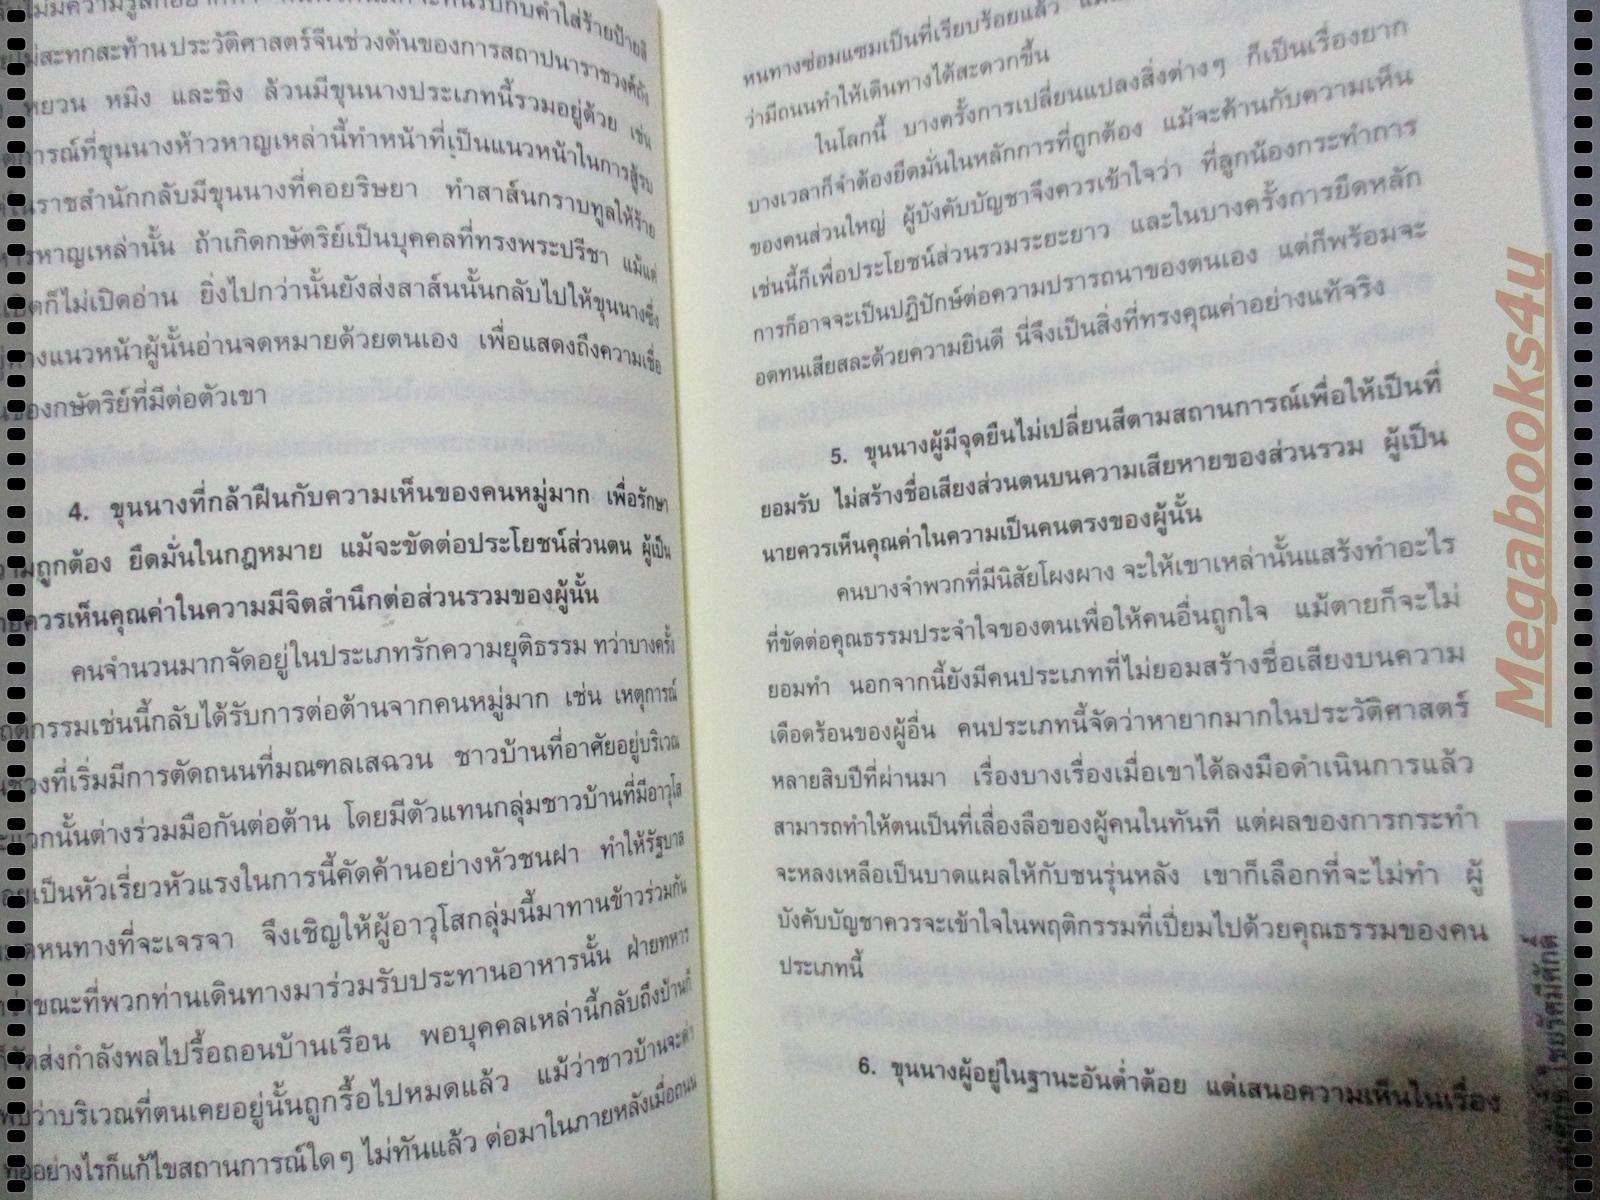 ไม่สะทกสะท้าน ประวัติศาสตร์จีนช่วงต้นของการสถาปนาราชวงศ์ถัง
หยวน หมิง และชิง ล้วนมีขุนนางประเภทนี้รวมอยู่ด้วย เช่น
ที่ขุนนางห้าวหาญเหล่านี้ทำหน้าที่เป็นแนวหน้าในการสู้รบ
ในราชสำนักกลับมีขุนนางที่คอยริษยา ทำสาส์นกราบทูลให้ร้าย
เหล่านั้น ถ้าเกิดกษัตริย์เป็นบุคคลที่ทรงพระปรีชา แม้แต่
เปิดก็ไม่เปิดอ่าน ยิ่งไปกว่านั้นยังส่งสาส์นนั้นกลับไปให้ขุนนางซึ่ง
แนวหน้าผู้นั้นอ่านจดหมายด้วยตนเอง เพื่อแสดงถึงความเชื่อ
ของกษัตริย์ที่มีต่อตัวเขา
4. ขุนนางที่กล้าฝืนกับความเห็นของคนหมู่มาก เพื่อรักษา
ถูกต้อง ยึดมั่นในกฎหมาย แม้จะขัดต่อประโยชน์ส่วนตน ผู้เป็น
ควรเห็นคุณค่าในความมีจิตสำนึกต่อส่วนรวมของผู้นั้น
คนจำนวนมากจัดอยู่ในประเภทรักความยุติธรรม ทว่าบางครั้ง
เช่นนี้กลับได้รับการต่อต้านจากคนหมู่มาก เช่น เหตุการณ์
ที่เริ่มมีการตัดถนนที่มณฑลเสฉวน ชาวบ้านที่อาศัยอยู่บริเวณ
นั้นต่างร่วมมือกันต่อต้าน โดยมีตัวแทนกลุ่มชาวบ้านที่มีอาวุโส
เป็นหัวเรี่ยวหัวแรงในการนี้คัดค้านอย่างหัวชนฝา ทำให้รัฐบาล
หนทางที่จะเจรจา จึงเชิญให้ผู้อาวุโสกลุ่มนี้มาทานข้าวร่วมกัน
ว่าขณะที่พวกท่านเดินทางมาร่วมรับประทานอาหารนั้น ฝ่ายทหาร
ก็จัดส่งกำลังพลไปรื้อถอนบ้านเรือน พอบุคคลเหล่านี้กลับถึงบ้านก็
พบว่าบริเวณที่ตนเคยอยู่นั้นถูกรื้อไปหมดแล้ว แม้ว่าชาวบ้านจะด่า
อย่างไรก็แก้ไขสถานการณ์ใดๆ ไม่ทันแล้ว ต่อมาในภายหลังเมื่อถนน
หนทางซ่อมแซมเป็นที่เรียบร้อยแล้ว
ว่ามีถนนทำให้เดินทางได้สะดวกขึ้น
ในโลกนี้ บางครั้งการเปลี่ยนแปลงสิ่งต่างๆ ก็เป็นเรื่องยาก
บางเวลาก็จำต้องยึดมั่นในหลักการที่ถูกต้อง แม้จะค้านกับความเห็น
ของคนส่วนใหญ่ ผู้บังคับบัญชาจึงควรเข้าใจว่า ที่ลูกน้องกระทำการ
เช่นนี้ก็เพื่อประโยชน์ส่วนรวมระยะยาว และในบางครั้งการยึดหลัก
การก็อาจจะเป็นปฏิปักษ์ต่อความปรารถนาของตนเอง แต่ก็พร้อมจะ
อดทนเสียสละด้วยความยินดี นี่จึงเป็นสิ่งที่ทรงคุณค่าอย่างแท้จริง
5. ขุนนางผู้มีจุดยืนไม่เปลี่ยนสีตามสถานการณ์เพื่อให้เป็นที่
ยอมรับ ไม่สร้างชื่อเสียงส่วนตนบนความเสียหายของส่วนรวม ผู้เป็น
นายควรเห็นคุณค่าในความเป็นคนตรงของผู้นั้น
คนบางจำพวกที่มีนิสัยโผงผาง จะให้เขาเหล่านั้นแสร้งทำอะไร
ที่ขัดต่อคุณธรรมประจำใจของตนเพื่อให้คนอื่นถูกใจ แม้ตายก็จะไม่
ยอมทำ นอกจากนี้ยังมีคนประเภทที่ไม่ยอมสร้างชื่อเสียงบนความ
เดือดร้อนของผู้อื่น คนประเภทนี้จัดว่าหายากมากในประวัติศาสตร์
หลายสิบปีที่ผ่านมา เรื่องบางเรื่องเมื่อเขาได้ลงมือดำเนินการแล้ว
สามารถทำให้ตนเป็นที่เลื่องลือของผู้คนในทันที แต่ผลของการกระทำ
จะหลงเหลือเป็นบาดแผลให้กับชนรุ่นหลัง เขาก็เลือกที่จะไม่ทำ ผู้
บังคับบัญชาควรจะเข้าใจในพฤติกรรมที่เปี่ยมไปด้วยคุณธรรมของคน
ประเภทนี้
6. ขุนนางผู้อยู่ในฐานะอันต่ำต้อย แต่เสนอความเห็นในเรื่อง
Megabooks4u